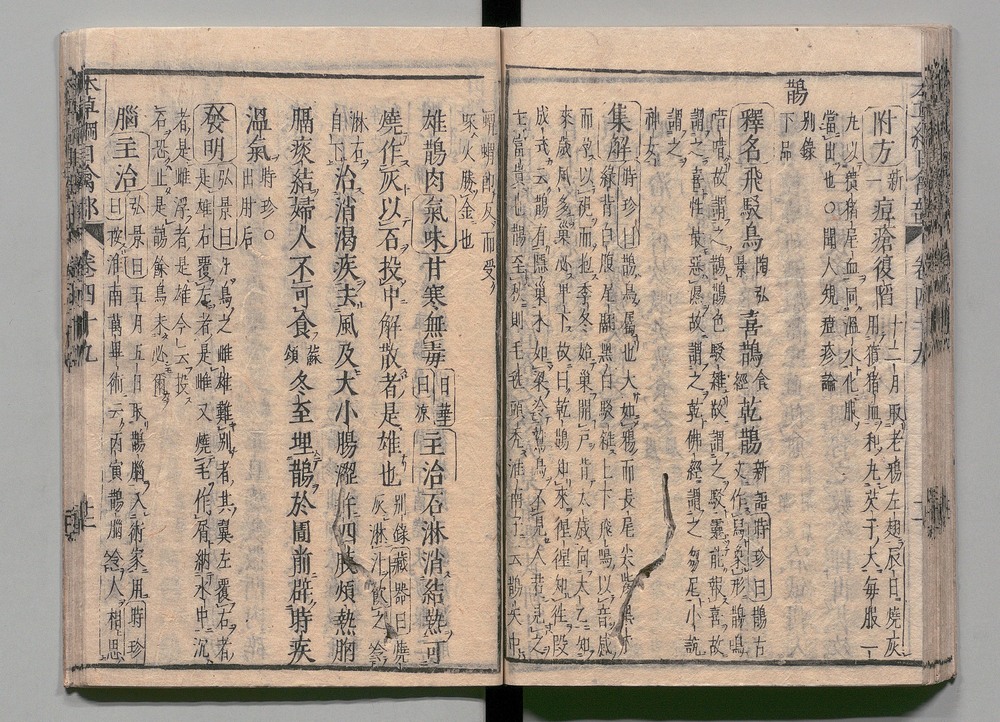 附方新一痘瘡復陷十二月取老鴉左翅辰日燒灰
用豶猪血和丸芡子大每服一
丸以豶猪尾血同溫水化服
當出也○聞人規痘疹論
鵲別錄
下品
釋名飛駁烏陶弘景喜鵲食經乾鵲新語時珍曰鵲古
文作舄象形鵲鳴
唶唶故謂之鵲鵲色駁雜故謂之駁靈能報喜故
謂之喜性最惡濕故謂之乾佛經謂之芻尼小說
謂之
神女
集解時珍曰鵲烏屬也大如鴉而長尾尖觜黑爪
綠背白腹尾翮黑白駁雜上下飛鳴以音感
而孕以視而抱季冬始巢開戶背太歲向太乙知
來歲風多巢必卑下故曰乾鵲知來猩猩知往段
成式云鵲有隱巢木如梁令鷙鳥不見人若見之
主富貴也鵲至秋則毛毨頭禿淮南子云鵲矢中
蝟蝟即反而受
啄火勝金也
雄鵲肉氣味甘寒無毒日華曰涼主治石淋消結熱可
燒作灰以石投中解散者是雄也別錄藏器曰燒
灰淋汁飲之令
淋石下
自下治消渴疾去風及大小腸澀并四肢煩熱胸
膈痰結婦人不可食蘇頌冬至埋鵲於圊前辟時疾
溫氣時珍○
出肘后
發明弘景曰凡鳥之雌雄難別者其翼左覆右者
是雄右覆左者是雌又燒毛作屑納水中沉
者是雌浮者是雄今云投
石恐止是鵲餘鳥未必爾
腦主治弘景曰五月五日取鵲腦入術家用時珍
曰按淮南萬畢術云丙寅鵲腦令人相思
本草綱目禽部 卷四十九